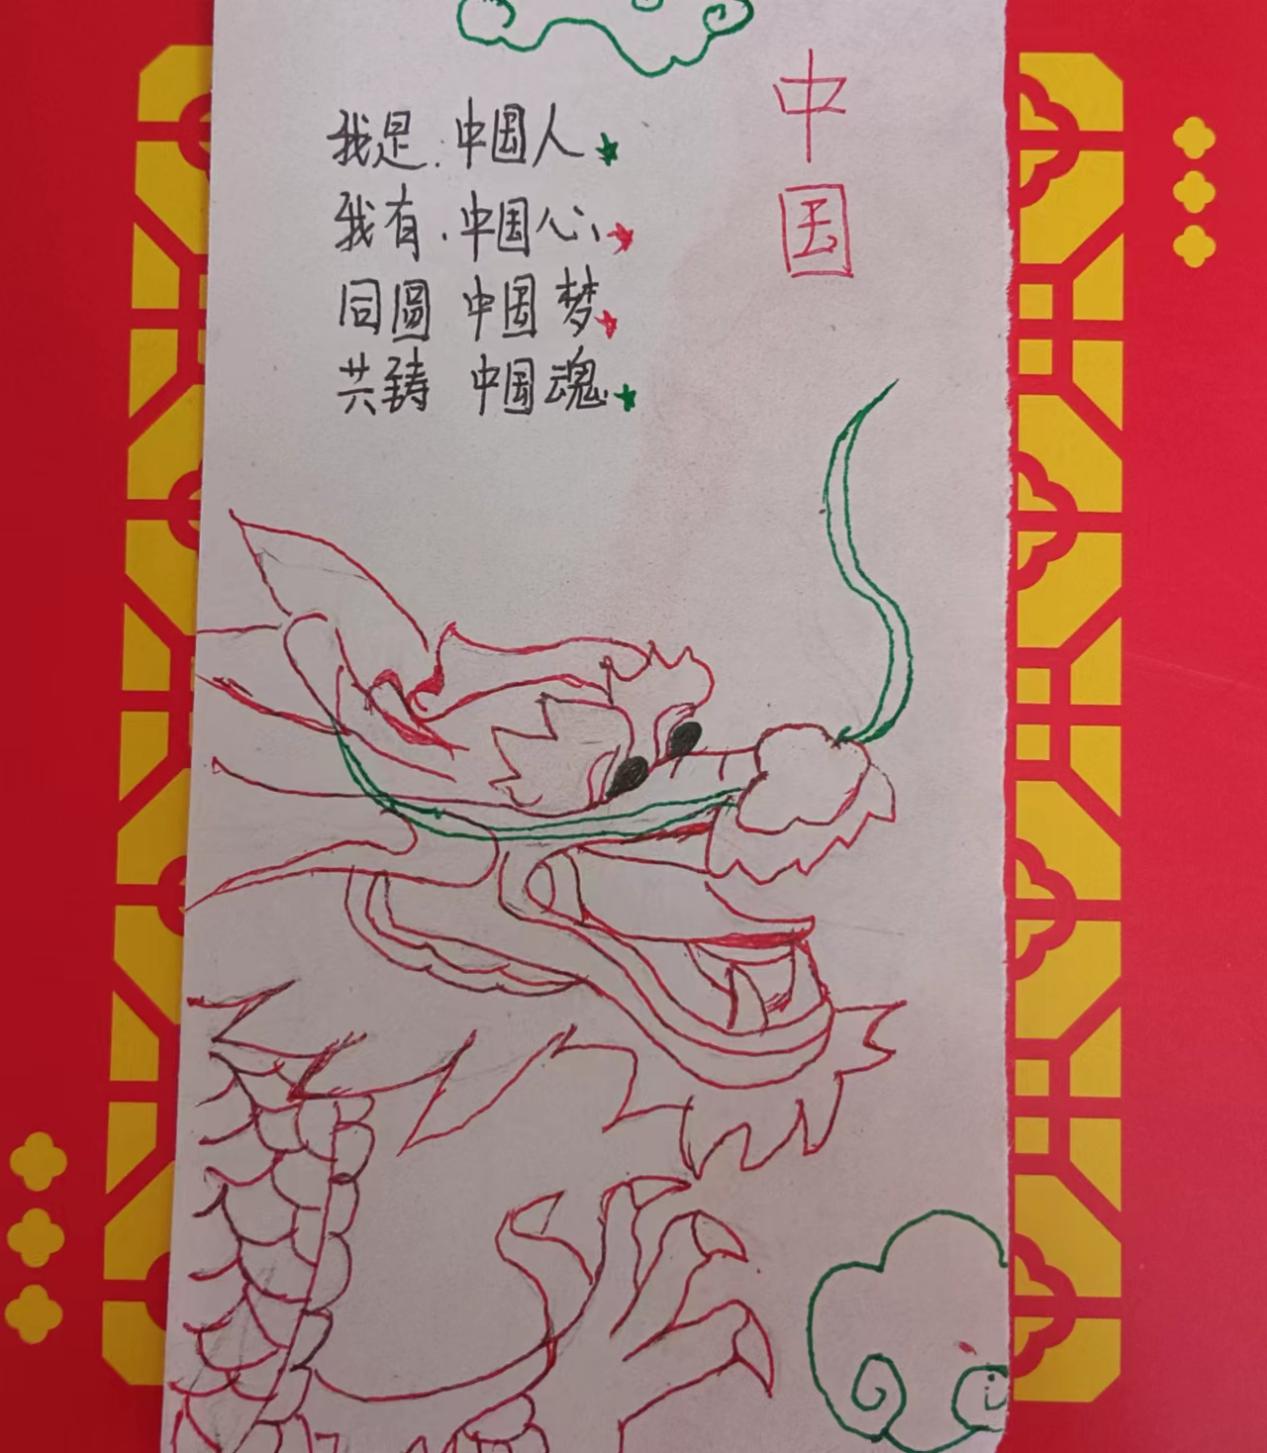 我是.中国人
我有.中国心
同圆 中国梦
共铸 中国魂
中
国